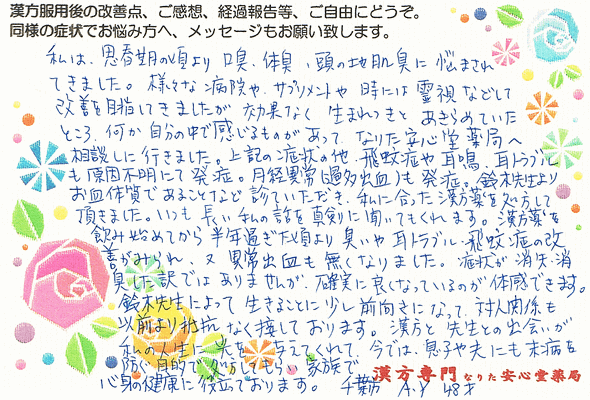 漢方服用後の改善点、ご感想、経過報告等、ご自由にどうぞ。
同様の症状でお悩み方へ、メッセージもお願い致します。
私は、思春期の頃より口臭、体臭、頭の地肌臭に悩まされ
てきました。様々な病院や、サプリメントや時には霊視などして
改善を目指してきましたが効果なく生まれつきとあきらめていた
ところ、何か自分の中で感じるものがあって、なりた安心堂薬局へ
相談しに行きました。上記の症状の他、飛蚊症や耳鳴、耳トラブル
も原因不明にて発症。月経異常(過多出血)も発症。鈴木先生より
お血体質であることなど診ていただき、私に合った漢方薬を処方して
頂きました。いつも長い私の話を真剣に聞いてもくれます。漢方薬を
飲み始めてから半年過ぎた頃より臭いや耳トラブル・飛蚊症の改
善がみられ、又異常出血も無くなりました。症状が消失・消
臭した訳ではありませんが、確実に良くなっているのが体感できます。
鈴木先生によって生きることに少し前向きになって、対人関係も
以前より抵抗なく接しております。漢方と先生との出会いが
私の人生に光を与えてくれて、今では、息子や夫にも未病を
防ぐ目的で処方してもらい、家族で
漢方専門なりた安心堂薬局
心身の健康に役立ております。千葉 A.Y 48才